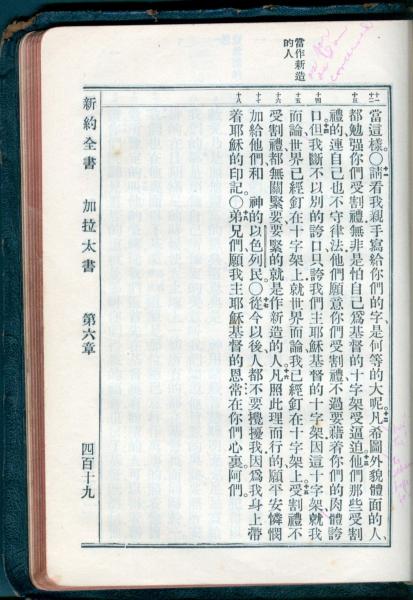 當作新造
的人
十一
十二
十三
十四
十五
十六
十七
十八
當這樣。○十一請看我親手寫給你們的字、是何等的大呢。十二凡希圖外貌體面的人、
都勉强你們受割禮、無非是怕自己爲基督的十字架受逼迫。十三他們那些受割
禮的、連自己也不守律法、他們願意你們受割禮、不過要藉着你們的肉體誇
口。十四但我斷不以別的誇口、只誇我們主耶穌基督的十字架、因這十字架、就我
而論、世界已經釘在十字架上、就世界而論、我已經釘在十字架上。十五受割禮不
受割禮、都無關緊要、要緊的就是作新造的人。十六凡照此理而行的、願平安憐憫
加給他們和 神的以色列民。○十七從今以後人都不要攪擾我、因爲我身上帶
着耶穌的印記。○十八弟兄們、願我主耶穌基督的恩常在你們心裏。阿們。
新約全書 加拉太書 第六章 四百十九
concerned